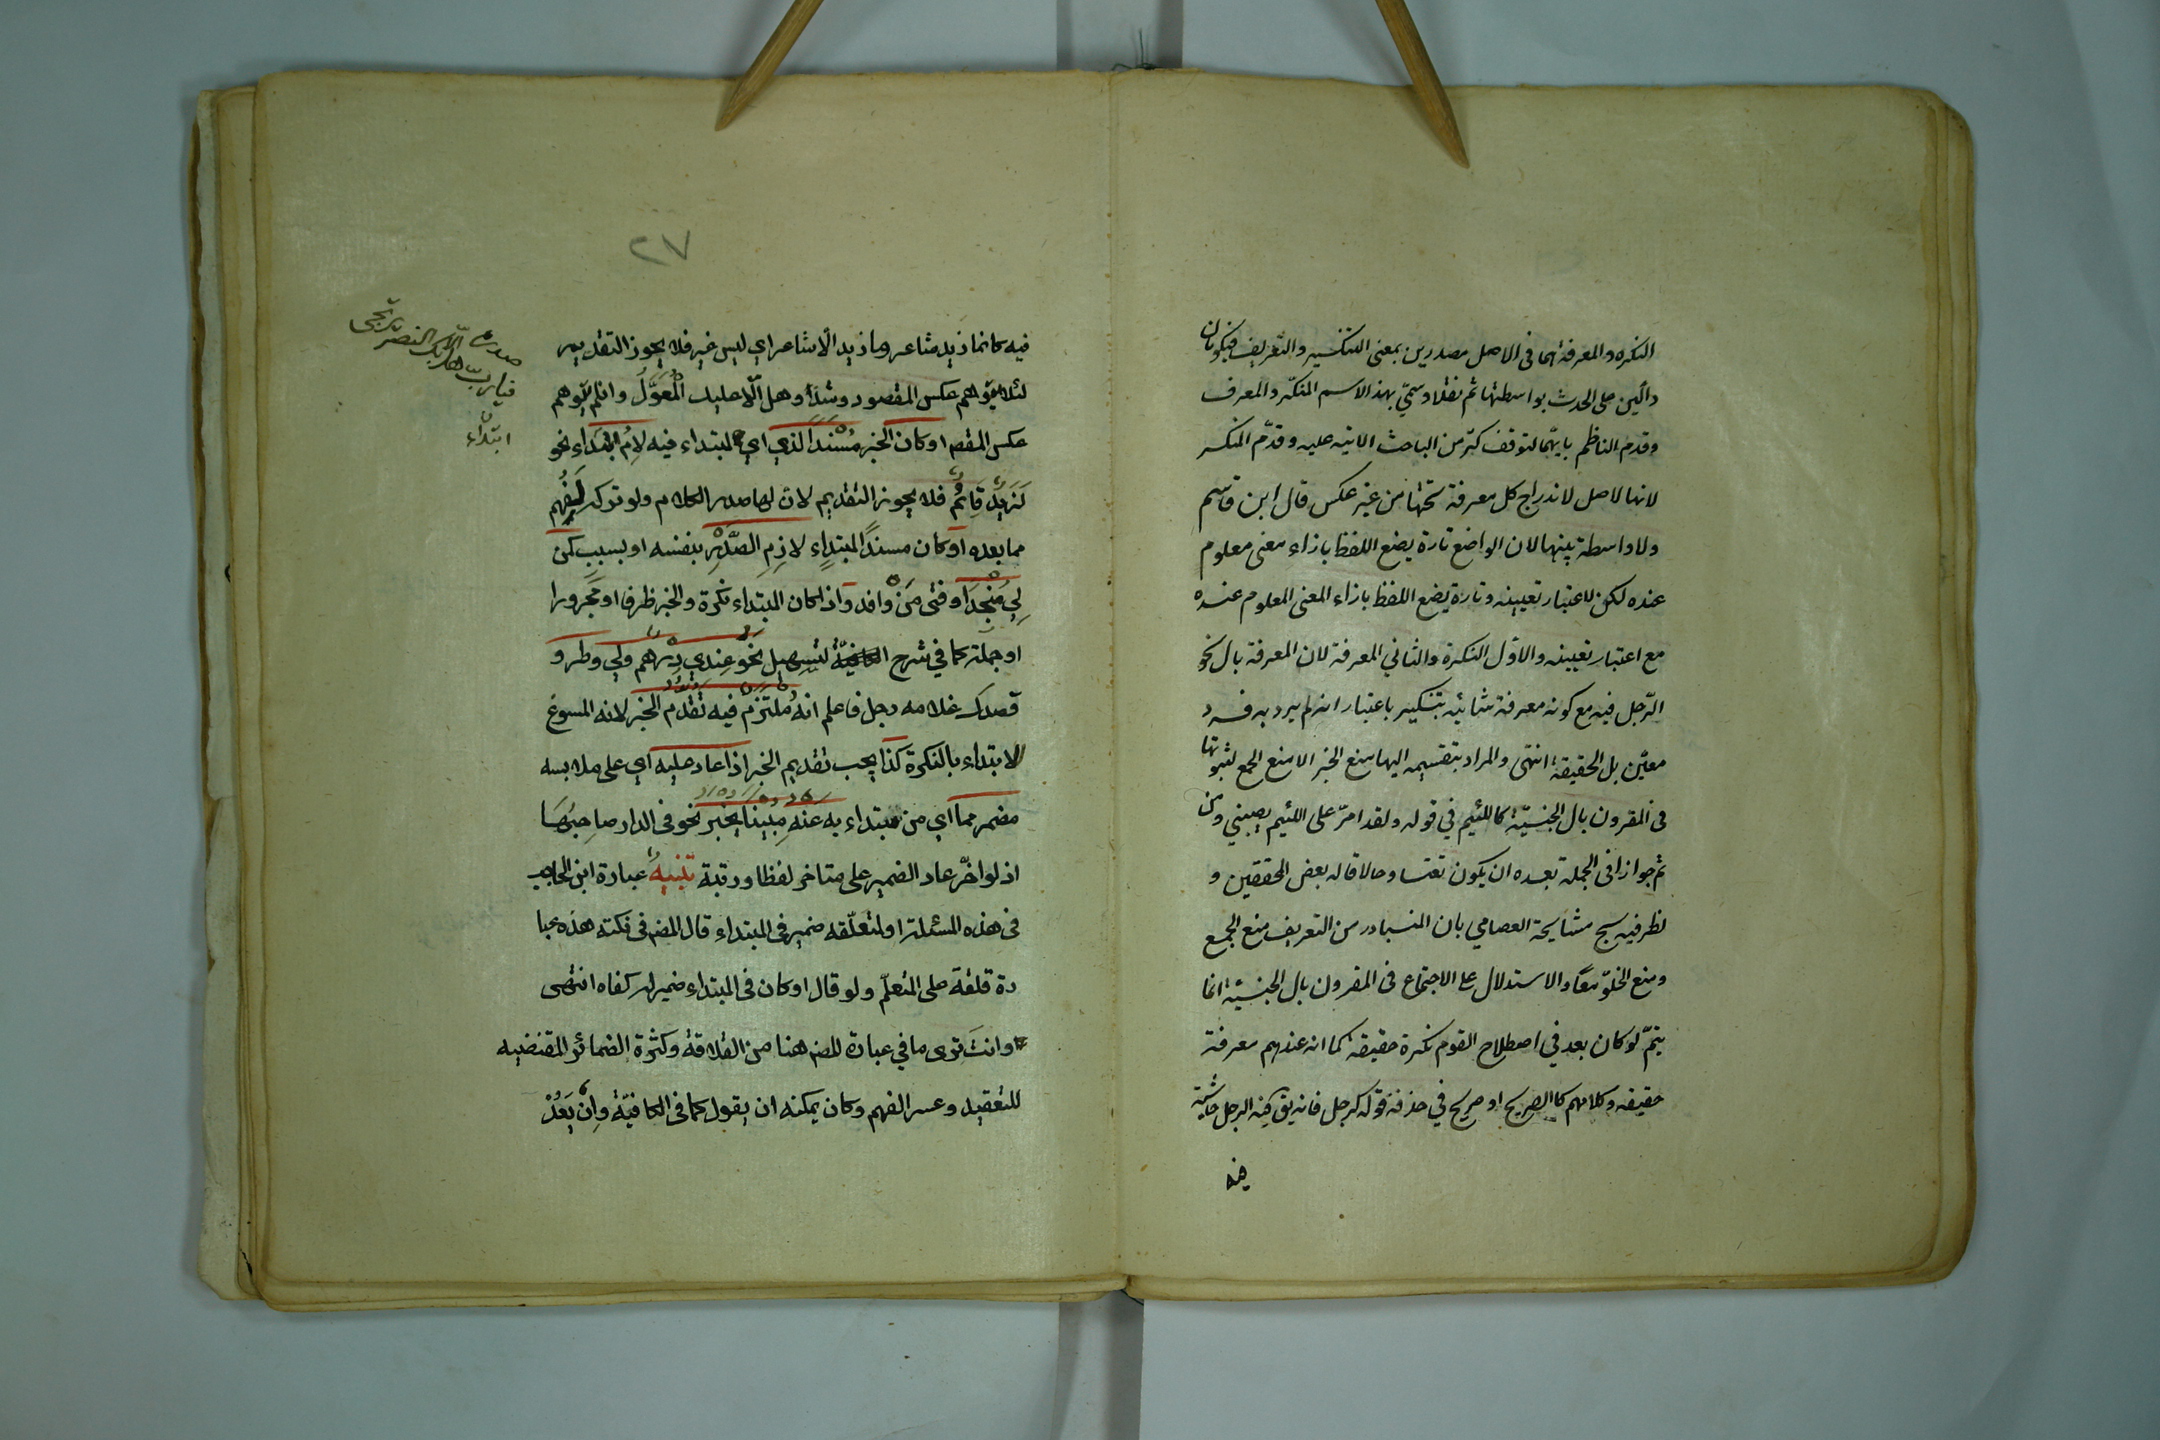 النكره والمعرفة هما فى الاصل مصدرين بمعنى التنكير والتعريف فيكونان
دالّين على الحدث بواسطتها ثم نقلا وسمّي بهذا الاسم المنكّر والمعرف
وقدم الناظم بابهما لتوقف كثر من الباحث الاتيه عليه وقدّم المنكر
لانها الاصل لاندراج كل معرفة تحتها من غير عكس قال ابن قاسم
ولا واسطة بينها لان الواضع تارة يضع اللفظ بازاء معنى معلوم
عنده لكن لا عتبار تعيينه وتارة يضع اللفظ بازاء المعنى المعلوم عنده
مع اعتبار تعيينه والاوّل النكرة والثانى المعرفة لان المعرفة بال نحو
الرّجل فيه مع كونه معرفة شائبه بتنكير باعتبار انه لم يرد به فرد
معيّن بل الحقيقة انتهى والمراد بتقسيمه اليها منع الخبر الا منع الجمع لثبوتها
فى المقرون بال الجنسيّة كاللئيم في قوله ولقد امرّ على اللئيم يصبني ومن
ثم جوازا فى الجملة بعده ان يكون نعتا وحالا قاله بعض المحققين و
نظر فيه مشايخه العصامي بان المتبادر من التعريف منع الجمع
ومنع الخلوّ معًا والاستدلال على الاجتماع فى المقرون بال الجنسيّة انما
يتمّ لو كان بعد في اصطلاح القوم نكرة حقيقة كما انه عندهم معرفة
حقيقه وكلامهم كالصريح او صريح في حذفه قوله كرجل فانه يق فيه الرجل
فيه
٢٧
فيه كانما زيد شاعر وما زيد الّا شاعر اي ليس غير فلا يجوز التقديم
لئلا يتوهم عكس المقصود وشذّ وهل الّا عليك المُعَوَّلُ وان لم يوهم
عكس المقصم او كان الخبر مُسْنَداً لذي اي لمبتداء فيه لامُ ابتَداءٍ نحو
لَزَيدٌ قائمٌ فلا يجوز التقديم لان لها صدر الكلام ولو تركر ليفهم
مما بعده او كان مسنداً لمبتداءٍ لازمِ الصَّدْرِ بنفسه او بسبب كمَن
لِي مُنْجِدَا وفتى مَنْ وافد واذا كان المبتداء نكرة والخبر ظرفا او مجرورا
او جملة كما في شرح التسهيل نحو عِندي دِرْهم ولي وطر و
قصدك غلامه رجل فاعلم انه مُلتَزمٌ فيه تقَدمُ الخبر لانه المسوغ
للابتداء بالنكرة كذا يجب تقديم الخبر اذا عاد عليه اي على ملابسه
مضمر مما اي من مبتداء به عنه مبينا يخبر نحو فى الدار صاحبُها
اذ لو اخّر عاد الضمير على متاخر لفظا ورتبة تنبيهٌ عبارة ابن الحاجب
فى هذه المسئلة او لتعلّقه ضمير فى المبتداء قال المص فى نكته هذه عبا
رة قلقة على المتعلّم ولو قال او كان فى المبتداء ضمير له كفاه انتهى
وانت ترى ما في عبارة المص هنا من القلاقة وكثرة الضمائر المقتضيه
للتعقيد وعسر الفهم وكان يمكنه ان يقول كما فى الكافيّة وان يَعُدْ
ابتداء